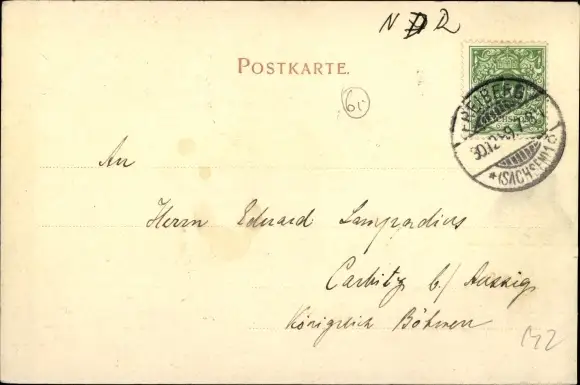 NDR
POSTKARTE.
60
FREIBERG
30.12.99.
*(SACHSEN)1c
An
Herrn Eduard Lampadius
Carbitz b/ Aussig
Königreich Böhmen